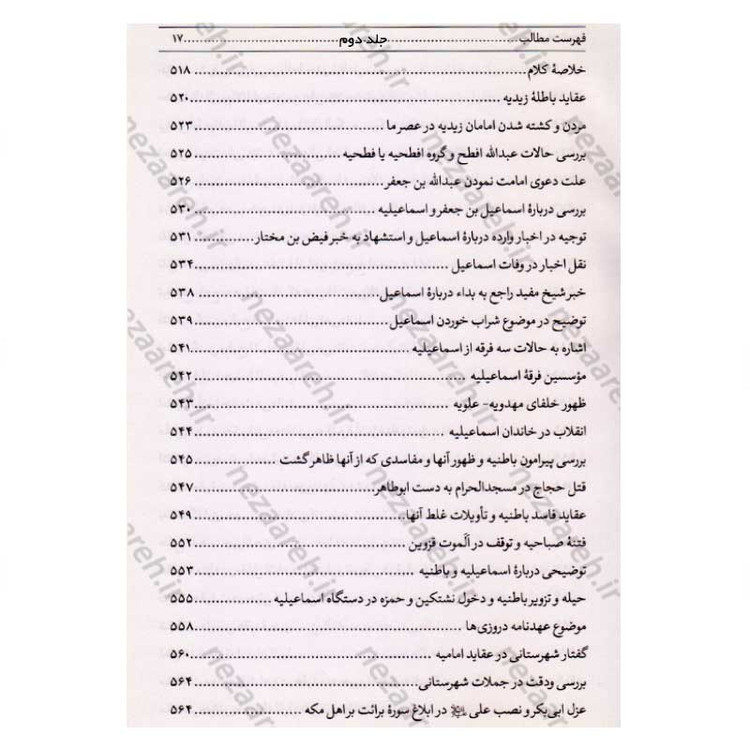 فهرست مطالب ........ جلد دوم ........ ۱۷
خلاصهٔ کلام ........ ۵۱۸
عقاید باطلهٔ زیدیه ........ ۵۲۰
مردن و کشته شدن امامان زیدیه در عصر ما ........ ۵۲۳
بررسی حالات عبدالله افطح و گروه افطحیه یا فطحیه ........ ۵۲۵
علت دعوی امامت نمودن عبدالله بن جعفر ........ ۵۲۶
بررسی دربارهٔ اسماعیل بن جعفر و اسماعیلیه ........ ۵۳۰
توجیه در اخبار وارده دربارهٔ اسماعیل و استشهاد به خبر فیض بن مختار ........ ۵۳۱
نقل اخبار در وفات اسماعیل ........ ۵۳۴
خبر شیخ مفید راجع به بداء دربارهٔ اسماعیل ........ ۵۳۸
توضیح در موضوع شراب خوردن اسماعیل ........ ۵۳۹
اشاره به حالات سه فرقه از اسماعیلیه ........ ۵۴۱
مؤسسین فرقهٔ اسماعیلیه ........ ۵۴۲
ظهور خلفای مهدویه - علویه ........ ۵۴۳
انقلاب در خاندان اسماعیلیه ........ ۵۴۴
بررسی پیرامون باطنیه و ظهور آنها و مفاسدی که از آنها ظاهر گشت ........ ۵۴۵
قتل حجاج در مسجدالحرام به دست ابوطاهر ........ ۵۴۷
عقاید فاسد باطنیه و تأویلات غلط آنها ........ ۵۴۹
فتنهٔ صباحیه و توقف در اَلَموت قزوین ........ ۵۵۲
توضیحی دربارهٔ اسماعیلیه و باطنیه ........ ۵۵۳
حیله و تزویر باطنیه و دخول نشتکین و حمزه در دستگاه اسماعیلیه ........ ۵۵۵
موضوع عهدنامه دروزی‌ها ........ ۵۵۸
گفتار شهرستانی در عقاید امامیه ........ ۵۶۰
بررسی ودقت در جملات شهرستانی ........ ۵۶۴
عزل ابی‌بکر و نصب علی علیه‌السلام در ابلاغ سورهٔ برائت بر اهل مکه ........ ۵۶۴
nezaareh.ir